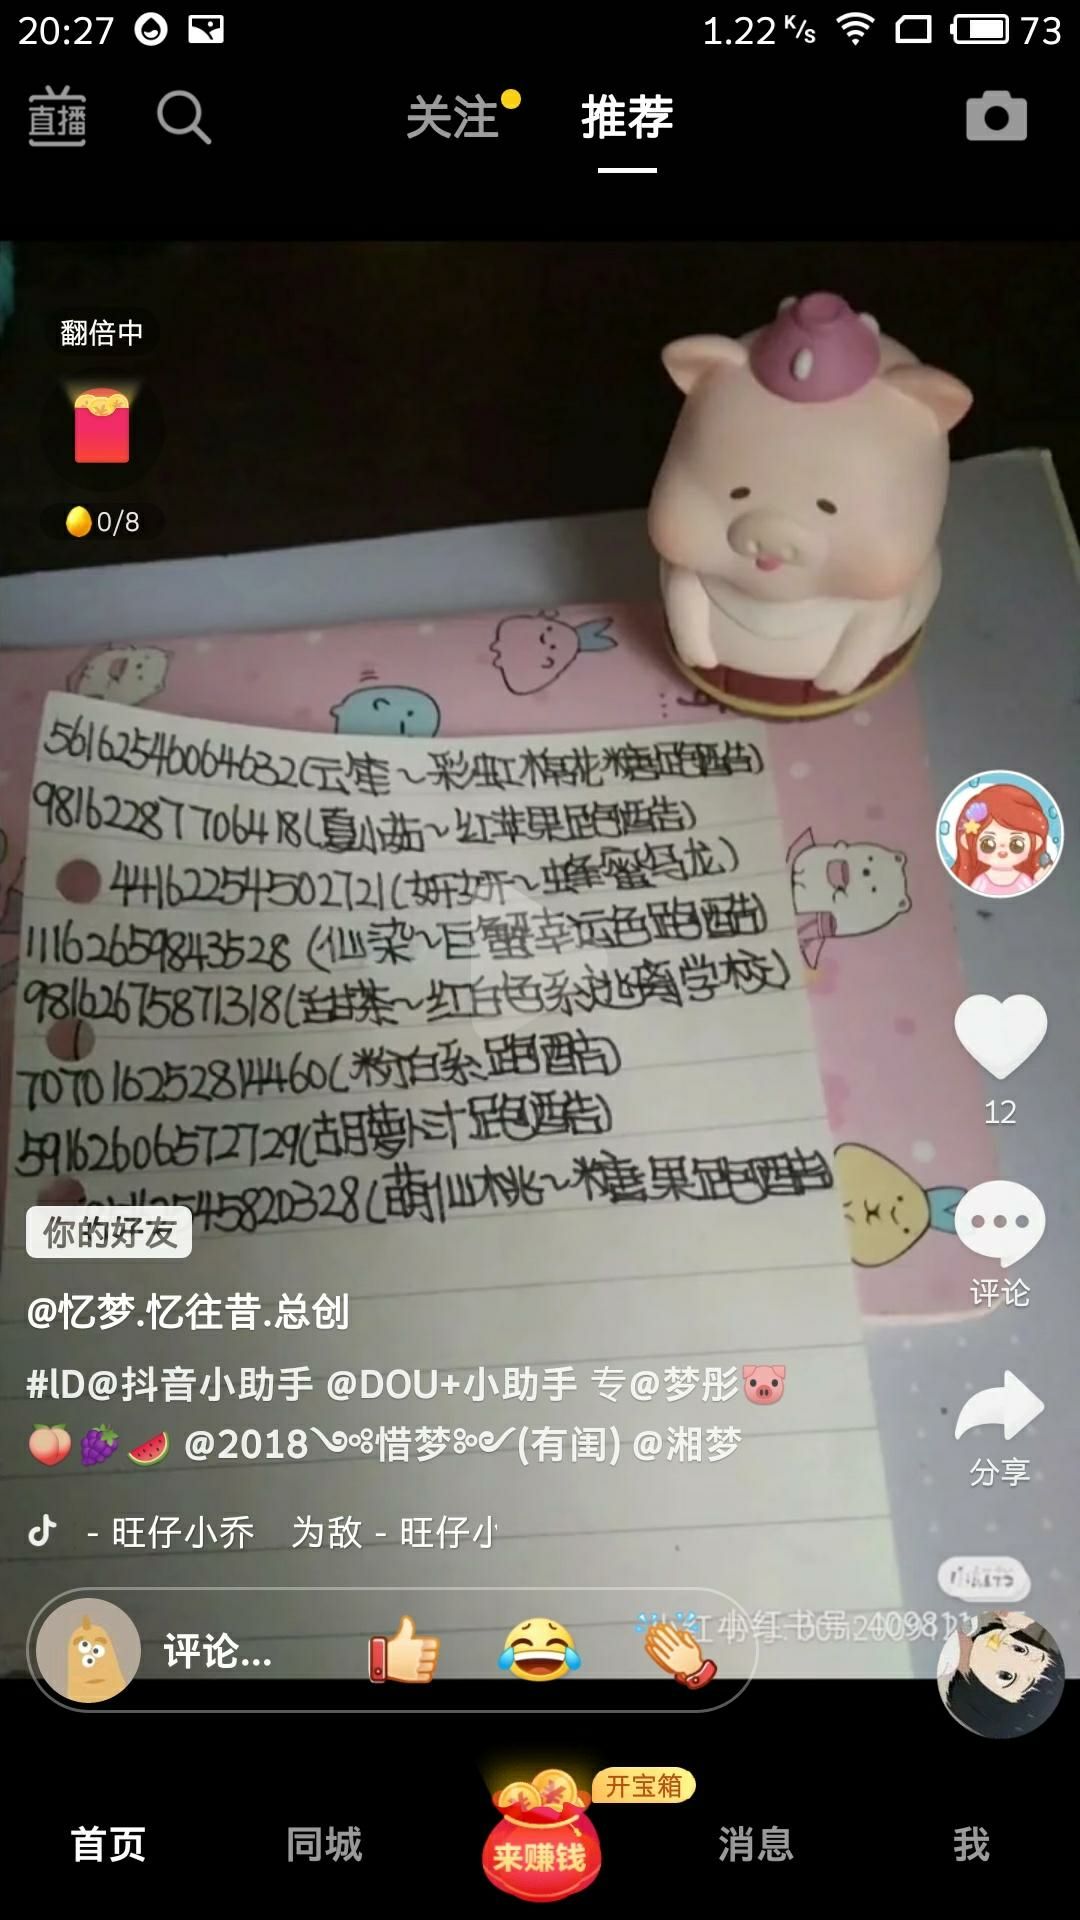 20:27
1.22 K/s
73
直播
关注
推荐
翻倍中
0/8
56162546064632(云笙～彩虹棉花糖跑酷)
98162287706418(夏小茹～红苹果跑酷)
44162254502721(妍妍～蜂蜜乌龙)
11162659843528 (仙染～巨蟹幸运色跑酷)
98162675871318(甜茶～红白色系逃离学校)
7070162528144460(粉白系跑酷)
59162606572729(胡萝卜汁跑酷)
45820328(萌仙桃～糖果跑酷)
12
评论
分享
你的好友
@忆梦.忆往昔.总创
#lD@抖音小助手 @DOU+小助手 专@梦彤🐷
🍑🍇🍉 @2018惜梦(有闺) @湘梦
- 旺仔小乔 为敌 - 旺仔小
评论...
开宝箱
来赚钱
首页
同城
消息
我